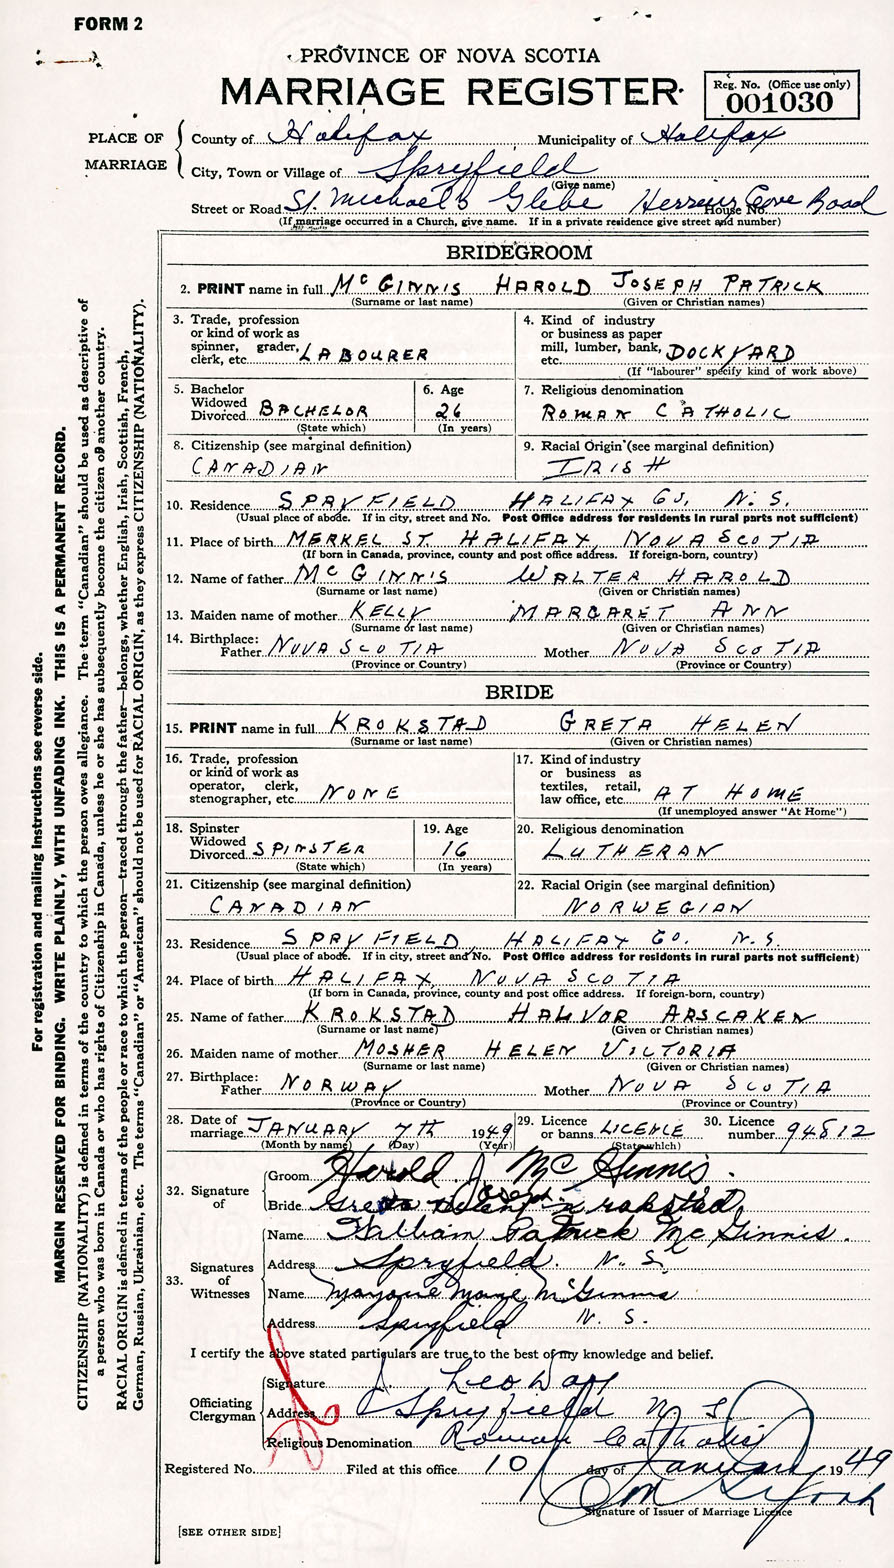 FORM 2
PROVINCE OF NOVA SCOTIA
MARRIAGE REGISTER
Reg. No. (Office use only)
001030
PLACE OF MARRIAGE
County of Halifax Municipality of Halifax
City, Town or Village of Spryfield
(Give name)
Street or Road St. Michael's Glebe Herring Cove Road House No.
(If marriage occurred in a Church, give name. If in a private residence give street and number)
BRIDEGROOM
2. PRINT name in full McGINNIS HAROLD JOSEPH PATRICK
(Surname or last name) (Given or Christian names)
3. Trade, profession or kind of work as spinner, grader, clerk, etc. LABOURER
4. Kind of industry or business as paper mill, lumber, bank, etc. DOCKYARD
(If "labourer" specify kind of work above)
5. Bachelor Widowed Divorced BACHELOR
(State which)
6. Age 26
(In years)
7. Religious denomination
ROMAN CATHOLIC
8. Citizenship (see marginal definition)
CANADIAN
9. Racial Origin (see marginal definition)
IRISH
10. Residence SPRYFIELD HALIFAX CO. N.S.
(Usual place of abode. If in city, street and No. Post Office address for residents in rural parts not sufficient)
11. Place of birth MERKEL ST. HALIFAX, NOVA SCOTIA
(If born in Canada, province, county and post office address. If foreign-born, country)
12. Name of father McGINNIS WALTER HAROLD
(Surname or last name) (Given or Christian names)
13. Maiden name of mother KELLY MARGARET ANN
(Surname or last name) (Given or Christian names)
14. Birthplace:
Father NOVA SCOTIA Mother NOVA SCOTIA
(Province or Country) (Province or Country)
BRIDE
15. PRINT name in full KROKSTAD GRETA HELEN
(Surname or last name) (Given or Christian names)
16. Trade, profession or kind of work as operator, clerk, stenographer, etc. NONE
17. Kind of industry or business as textiles, retail, law office, etc. AT HOME
(If unemployed answer "At Home")
18. Spinster Widowed Divorced SPINSTER
(State which)
19. Age 16
(In years)
20. Religious denomination
LUTHERAN
21. Citizenship (see marginal definition)
CANADIAN
22. Racial Origin (see marginal definition)
NORWEGIAN
23. Residence SPRYFIELD, HALIFAX CO. N.S.
(Usual place of abode. If in city, street and No. Post Office address for residents in rural parts not sufficient)
24. Place of birth HALIFAX, NOVA SCOTIA
(If born in Canada, province, county and post office address. If foreign-born, country)
25. Name of father KROKSTAD HALVOR ARSCAKEN
(Surname or last name) (Given or Christian names)
26. Maiden name of mother MOSHER HELEN VICTORIA
(Surname or last name) (Given or Christian names)
27. Birthplace:
Father NORWAY Mother NOVA SCOTIA
(Province or Country) (Province or Country)
28. Date of marriage JANUARY 7th 1949
(Month by name) (Day) (Year)
29. Licence or banns LICENCE
(State which)
30. Licence number 94812
32. Signature of
Groom Harold J. McGinnis.
Joseph
Bride Greta Helen Krokstad
33. Signatures of Witnesses
Name William Patrick McGinnis.
Address Spryfield. N. S.
Name Marjorie Marye McGinnis
Address Spryfield N. S.
I certify the above stated particulars are true to the best of my knowledge and belief.
Officiating Clergyman
Signature J. Leo Day
Address Spryfield N S
Religious Denomination Roman Catholic
Registered No. Filed at this office 10 day of January 1949
Signature of Issuer of Marriage Licence
[SEE OTHER SIDE]
For registration and mailing instructions see reverse side.
MARGIN RESERVED FOR BINDING. WRITE PLAINLY, WITH UNFADING INK. THIS IS A PERMANENT RECORD.
CITIZENSHIP (NATIONALITY) is defined in terms of the country to which the person owes allegiance. The term "Canadian" should be used as descriptive of
a person who was born in Canada or who has rights of Citizenship in Canada, unless he or she has subsequently become the citizen of another country.
RACIAL ORIGIN is defined in terms of the people or race to which the person—traced through the father—belongs, whether English, Irish, Scottish, French,
German, Russian, Ukrainian, etc. The terms "Canadian" or "American" should not be used for RACIAL ORIGIN, as they express CITIZENSHIP (NATIONALITY).